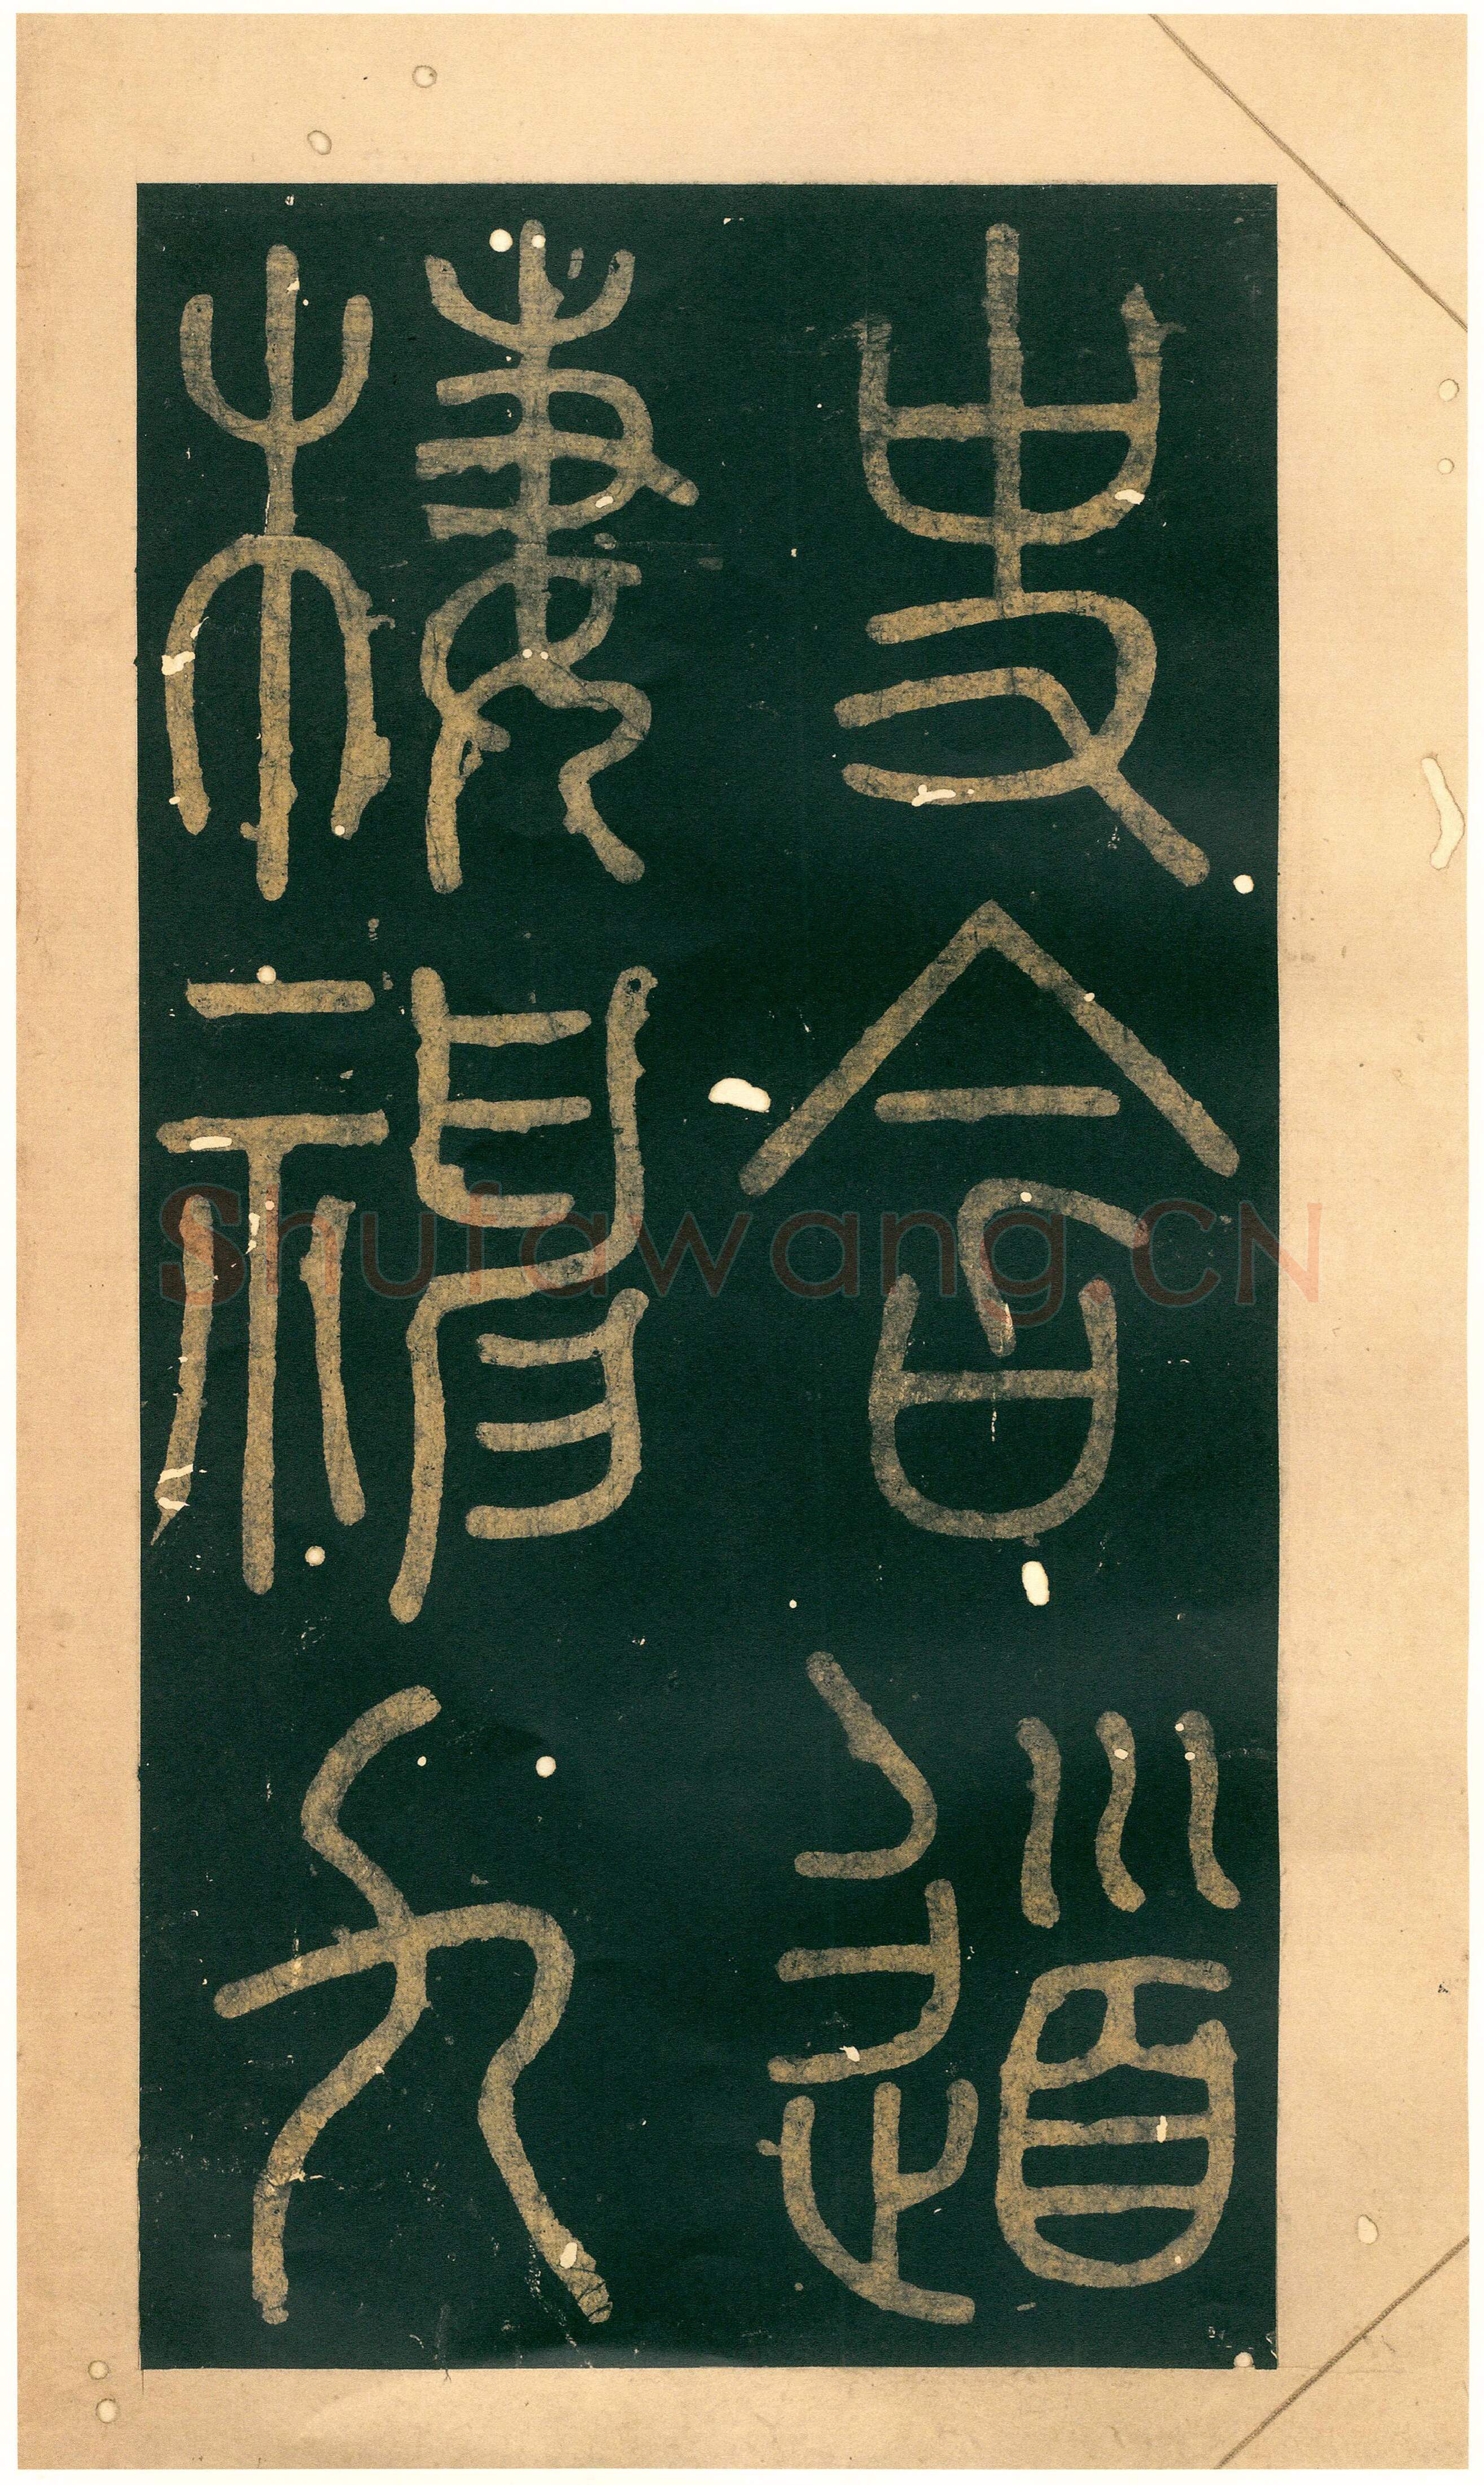 史含道
棲神九
Shufawang.CN